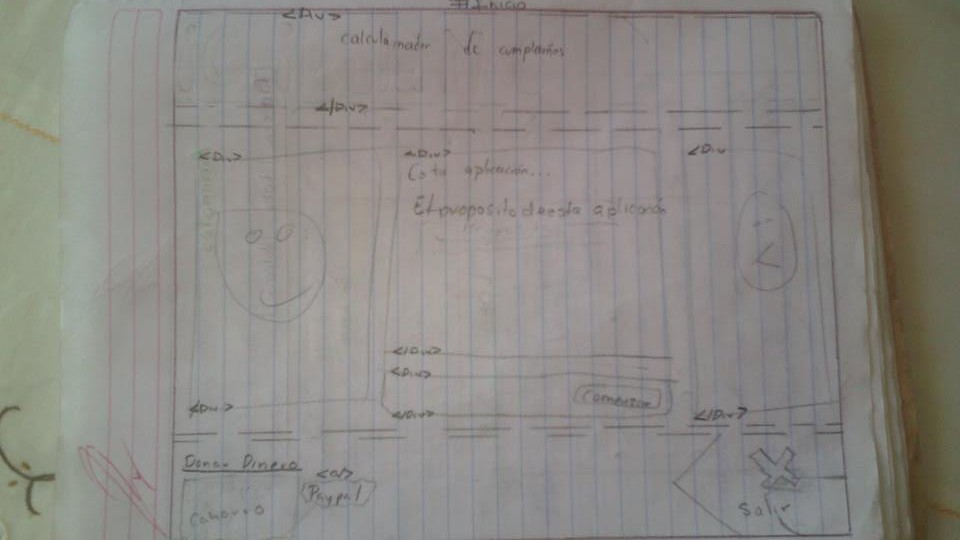 #Inicio
<Div>
calculamador de cumpleaños
</Div>
<Div> <Div> <Div
Esta aplicación...
El proposito de esta aplicación
</Div>
<Div>
Comenzar
<Div> </Div> </Div>
Donar Dinero
<a/>
Paypal
Salir